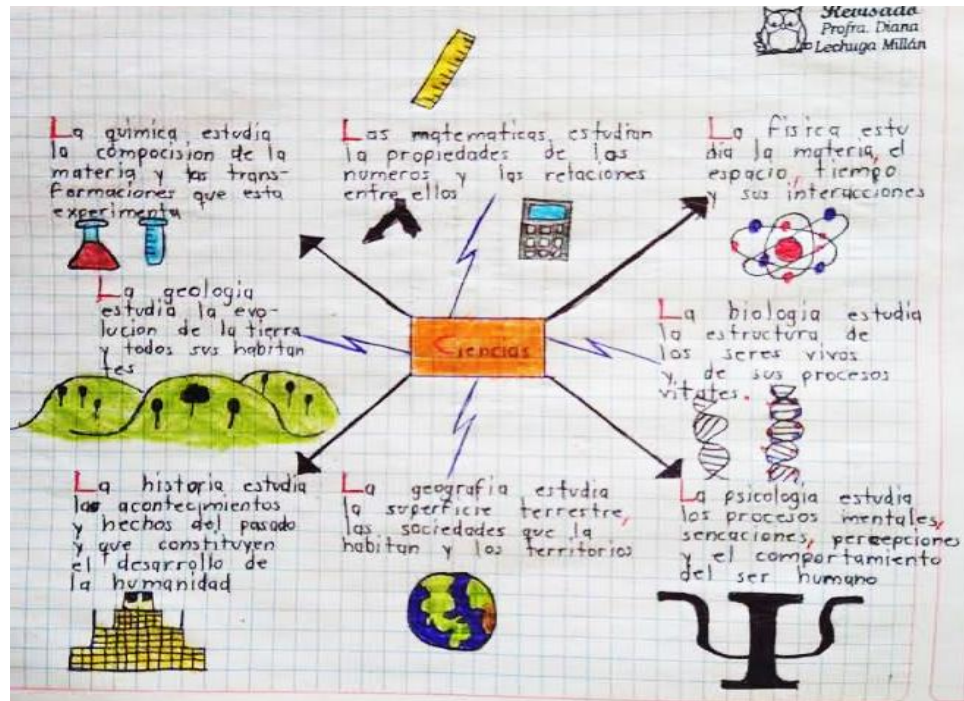 Revisado
Profra. Diana
Lechuga Millán
La química estudia
la compocision de la
materia y las trans-
formaciones que esta
experimenta
Las matematicas estudian
la propiedades de los
numeros y las relaciones
entre ellos
La Fisica estu
dia la materia, el
espacio, tiempo
y sus interacciones
La geologia
estudia la evo-
lucion de la tierra
y todos sus habitan
tes
Ciencias
La biologia estudia
la estructura de
los seres vivos
y de sus procesos
vitales.
La historia estudia
los acontecimientos
y hechos del pasado
y que constituyen
el desarrollo de
la humanidad
La geografia estudia
la superficie terrestre,
las sociedades que la
habitan y los territorios
La psicologia estudia
los procesos mentales,
sencaciones, percepciones
y el comportamiento
del ser humano
Ψ